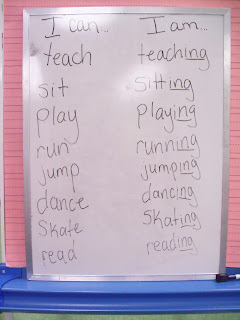 I can... I am...
teach teaching
sit sitting
play playing
run running
jump jumping
dance dancing
skate skating
read reading